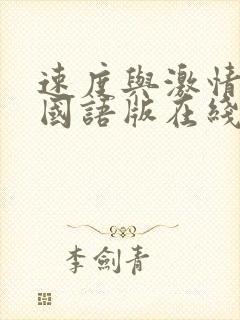 速度與激情
國語版在綫
李劍青